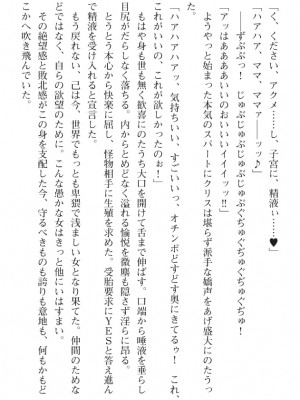 「く、ください、アクメ――し、子宮に、精液ぃ……♥
「ハアハア、ママ、ママァ――ッッ♪」
――ずぶぶっ！ じゅぶじゅぶじゅぶじゅぶぢゅぐぢゅぐぢゅ！
「アッはぁああああいいのおいいイイイーッッ!!」
ようやっと始まった本気のスパートにクリスは堪らず派手な嬌声をあげ盛大にのたうった。
「ハアハアハアッ、気持ちいい、すごいいっ、オチンポどすどす奥にきてるゥ！ これ、これがいいの、これが欲しかったのよお！」
もはや身も世も無く歓喜にのたうち大口を開けて舌まで伸ばす。口端から唾液を垂らし目尻がだらしなく落ちる。内からとめどなく溢れる愉悦を微塵も隠さず淫らに昂る。
とうとう本心から快楽に屈し、怪物相手に生殖を求めた。受胎要求にＹＥＳと答え進んで精液を受け入れると宣言した。
もう戻れない、己は今、世界でもっとも卑猥で浅ましい女となり果てた。仲間のためなどではなく、自らの欲望のために。こんな愚かな女はきっと他にいはすまい。
その絶望感と敗北感がこの身を支配した今、守るべきものも誇りも意地も、何もかもどこかへ吹き飛んでいた。